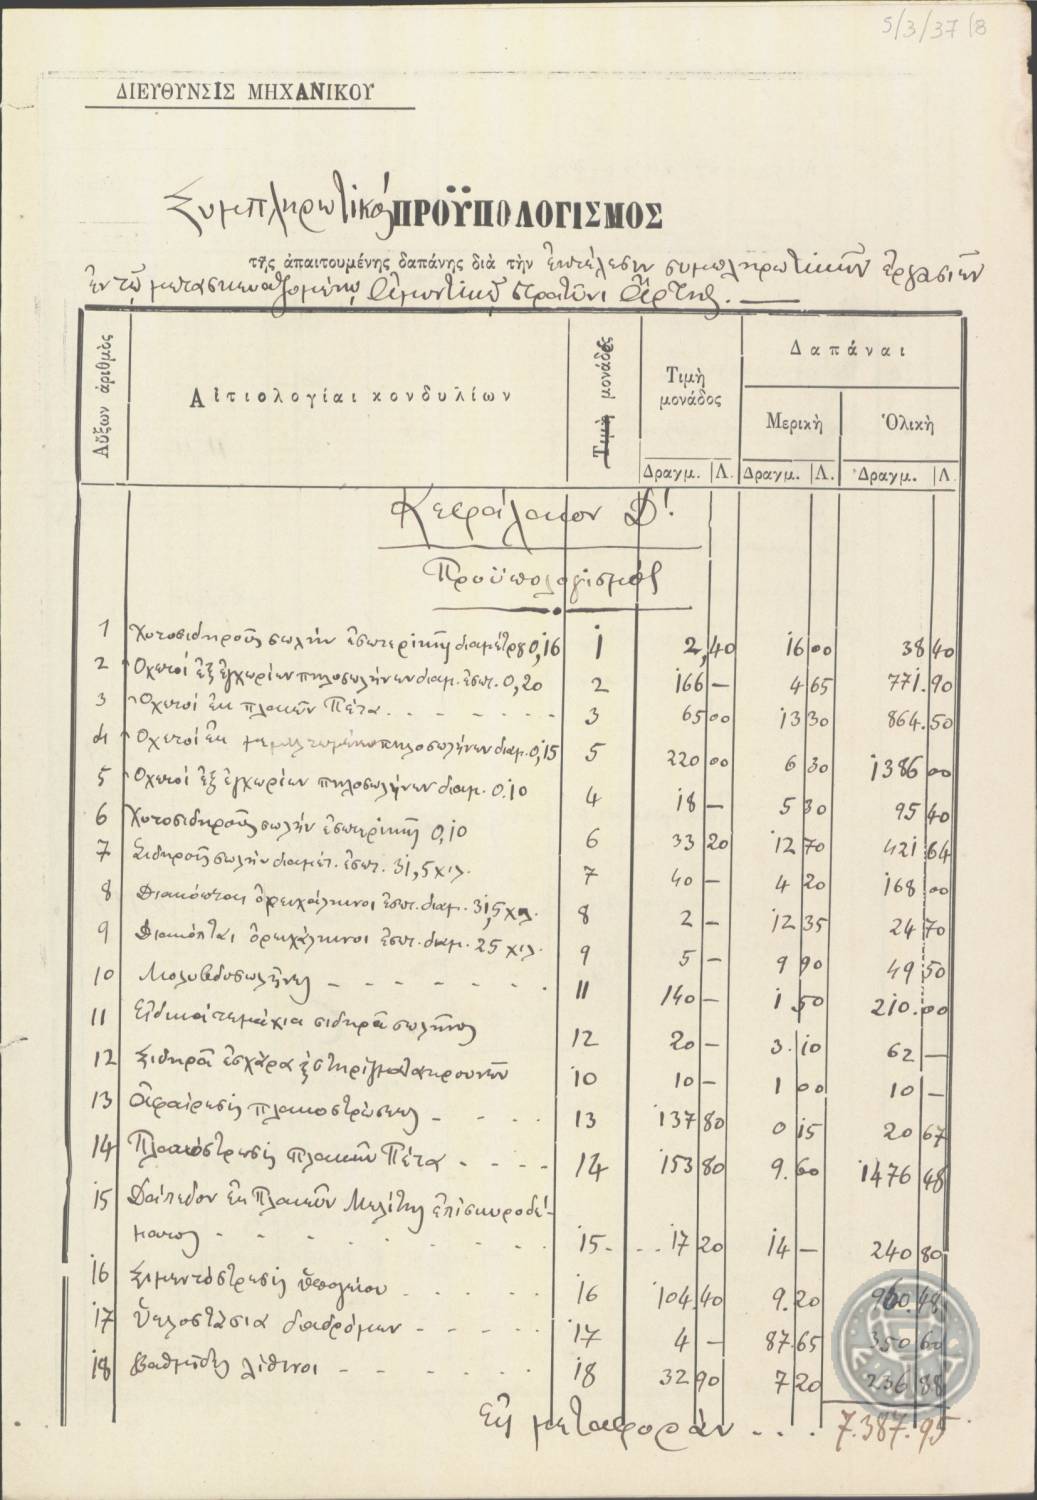 5/3/37/8
ΔΙΕΥΘΥΝΣΙΣ ΜΗΧΑΝΙΚΟΥ
Συμπληρωτικός ΠΡΟΫΠΟΛΟΓΙΣΜΟΣ
τῆς ἀπαιτουμένης δαπάνης διὰ τὴν ἐκτέλεσιν συμπληρωτικῶν ἐργασιῶν
ἐν τῷ μετασκευαζομένῳ Ὀθωμαντικῷ στρατῶνι Ἄρτης.
Αὔξων ἀριθμὸς Αἰτιολογίαι κονδυλίων Τιμὴ μονάδος Τιμὴ μονάδος Δαπάναι
Μερικὴ Ὁλικὴ
Δραγμ. Λ. Δραγμ. Λ. Δραγμ. Λ
Κεφάλαιον Δ!
Προϋπολογισμός
1 Χυτοσιδηροῦς σωλὴν ἐσωτερικῆς διαμέτρου 0,16 1 2,40 16 00 38 40
2 Ὀχετοί ἐξ ἐγχωρίων πηλοσωλήνων διαμ. ἐσωτ. 0,20 2 166 — 4 65 771.90
3 Ὀχετοί ἐκ πλακῶν Πέτα 3 65 00 13 30 864.50
4 Ὀχετοί ἐκ πηλοσωλήνων διαμ. 0,15 5 220 00 6 30 1386 00
5 Ὀχετοί ἐξ ἐγχωρίων πηλοσωλήνων διαμ. 0.10 4 18 — 5 30 95 40
6 Χυτοσιδηροῦς σωλὴν ἐσωτερικῆς 0,10 6 33 20 12 70 421 64
7 Σιδηροῦς σωλὴν διαμέτ. ἐσωτ. 31,5 χιλ. 7 40 — 4 20 168.00
8 Διακόπται ὀρειχάλκινοι ἐσωτ. διαμ. 31,5 χιλ. 8 2 — 12 35 24 70
9 Διακόπται ὀρειχάλκινοι ἐσωτ. διαμ. 25 χιλ. 9 5 — 9 90 49 50
10 Μολυβδοσωλῆνες 11 140 — 1 50 210.00
11 Εἰδικά τεμάχια σιδηρᾶ σωλῆνος 12 20 — 3.10 62 —
12 Σιδηρᾶ ἐσχάρα 10 10 — 1 00 10 —
13 Ἀφαίρεσις πλακοστρώσεως 13 137 80 0 15 20 67
14 Πλακόστρωσις πλακῶν Πέτα 14 153 80 9.60 1476 48
15 Δάπεδον ἐκ πλακῶν Μελίτης ἐπὶ σκυροδέ-
ματος 15 17 20 14 — 240 80
16 Σιμεντόστρωσις ὑπογείου 16 104.40 9.20 960.48
17 Ὑελοστάσια διαδρόμων 17 4 — 87.65 350 60
18 Βαθμῖδες λίθιναι 18 32 90 7 20 236 88
Εἰς μεταφοράν . . . 7.387.95